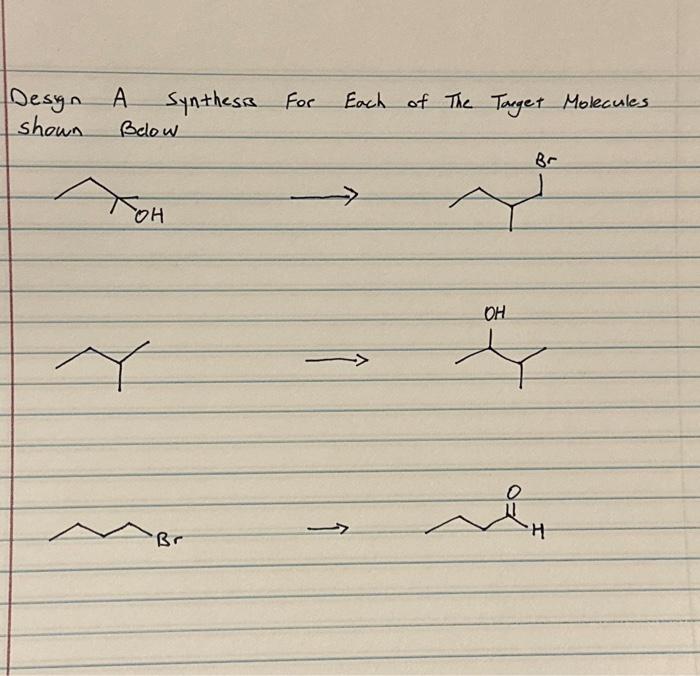 Design A Synthesis For Each of The Target Molecules
shown Below
Br
OH
OH
O
Br
H